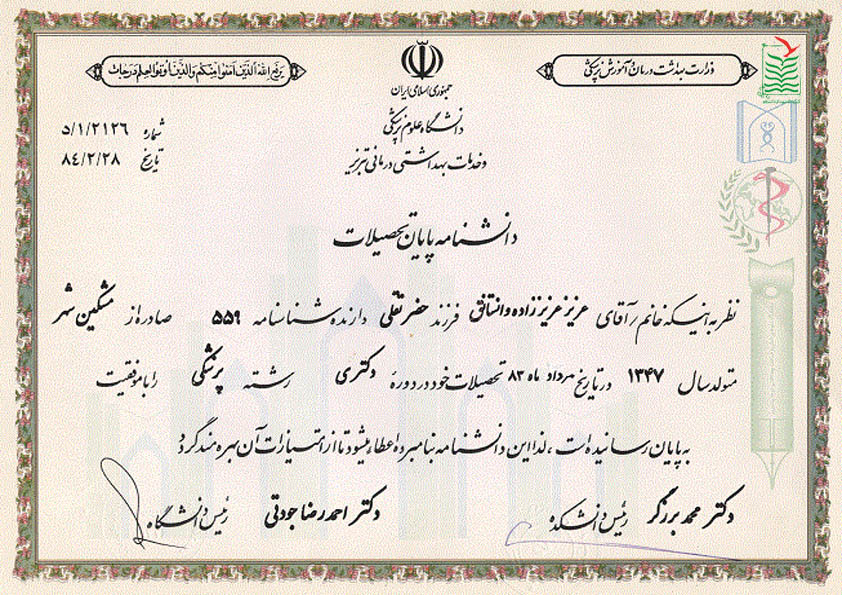 وزارت بهداشت درمان و آموزش پزشکی
یرفع الله الذین آمنوا منکم والذین اوتوا العلم درجات
جمهوری اسلامی ایران
دانشگاه علوم پزشکی
و خدمات بهداشتی درمانی تبریز
شماره ۵/۱/۲۱۲۶
تاریخ ۸۴/۲/۲۸
دانشنامه پایان تحصیلات
نظر به اینکه خانم / آقای عزیز عزیززاده وانستانق فرزند حضرتقلی دارنده شناسنامه ۵۵۹ صادره از مشکین شهر
متولد سال ۱۳۴۷ در تاریخ مرداد ماه ۸۳ تحصیلات خود در دوره دکتری رشته پزشکی را با موفقیت
به پایان رسانیده است ، لذا این دانشنامه بنامبرده اعطاء میشود تا از امتیازات آن بهره مند گردد
دکتر محمد برزگر رئیس دانشکده
دکتر احمدرضا جودتی رئیس دانشگاه